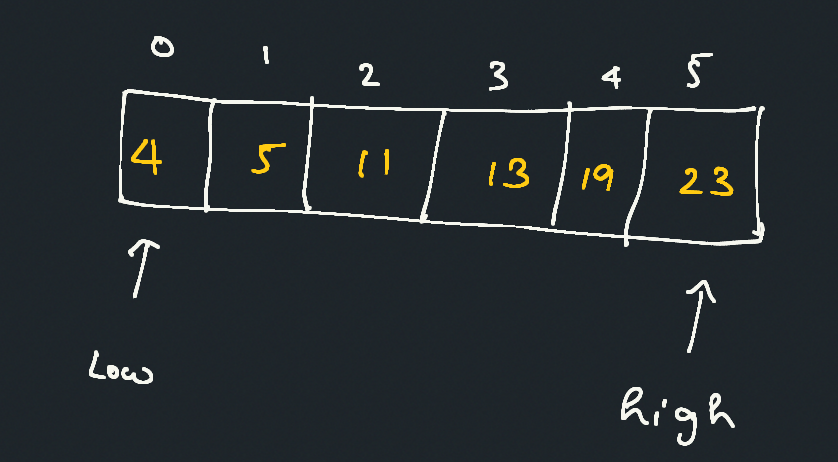 0 1 2 3 4 5
4 5 11 13 19 23
Low
high